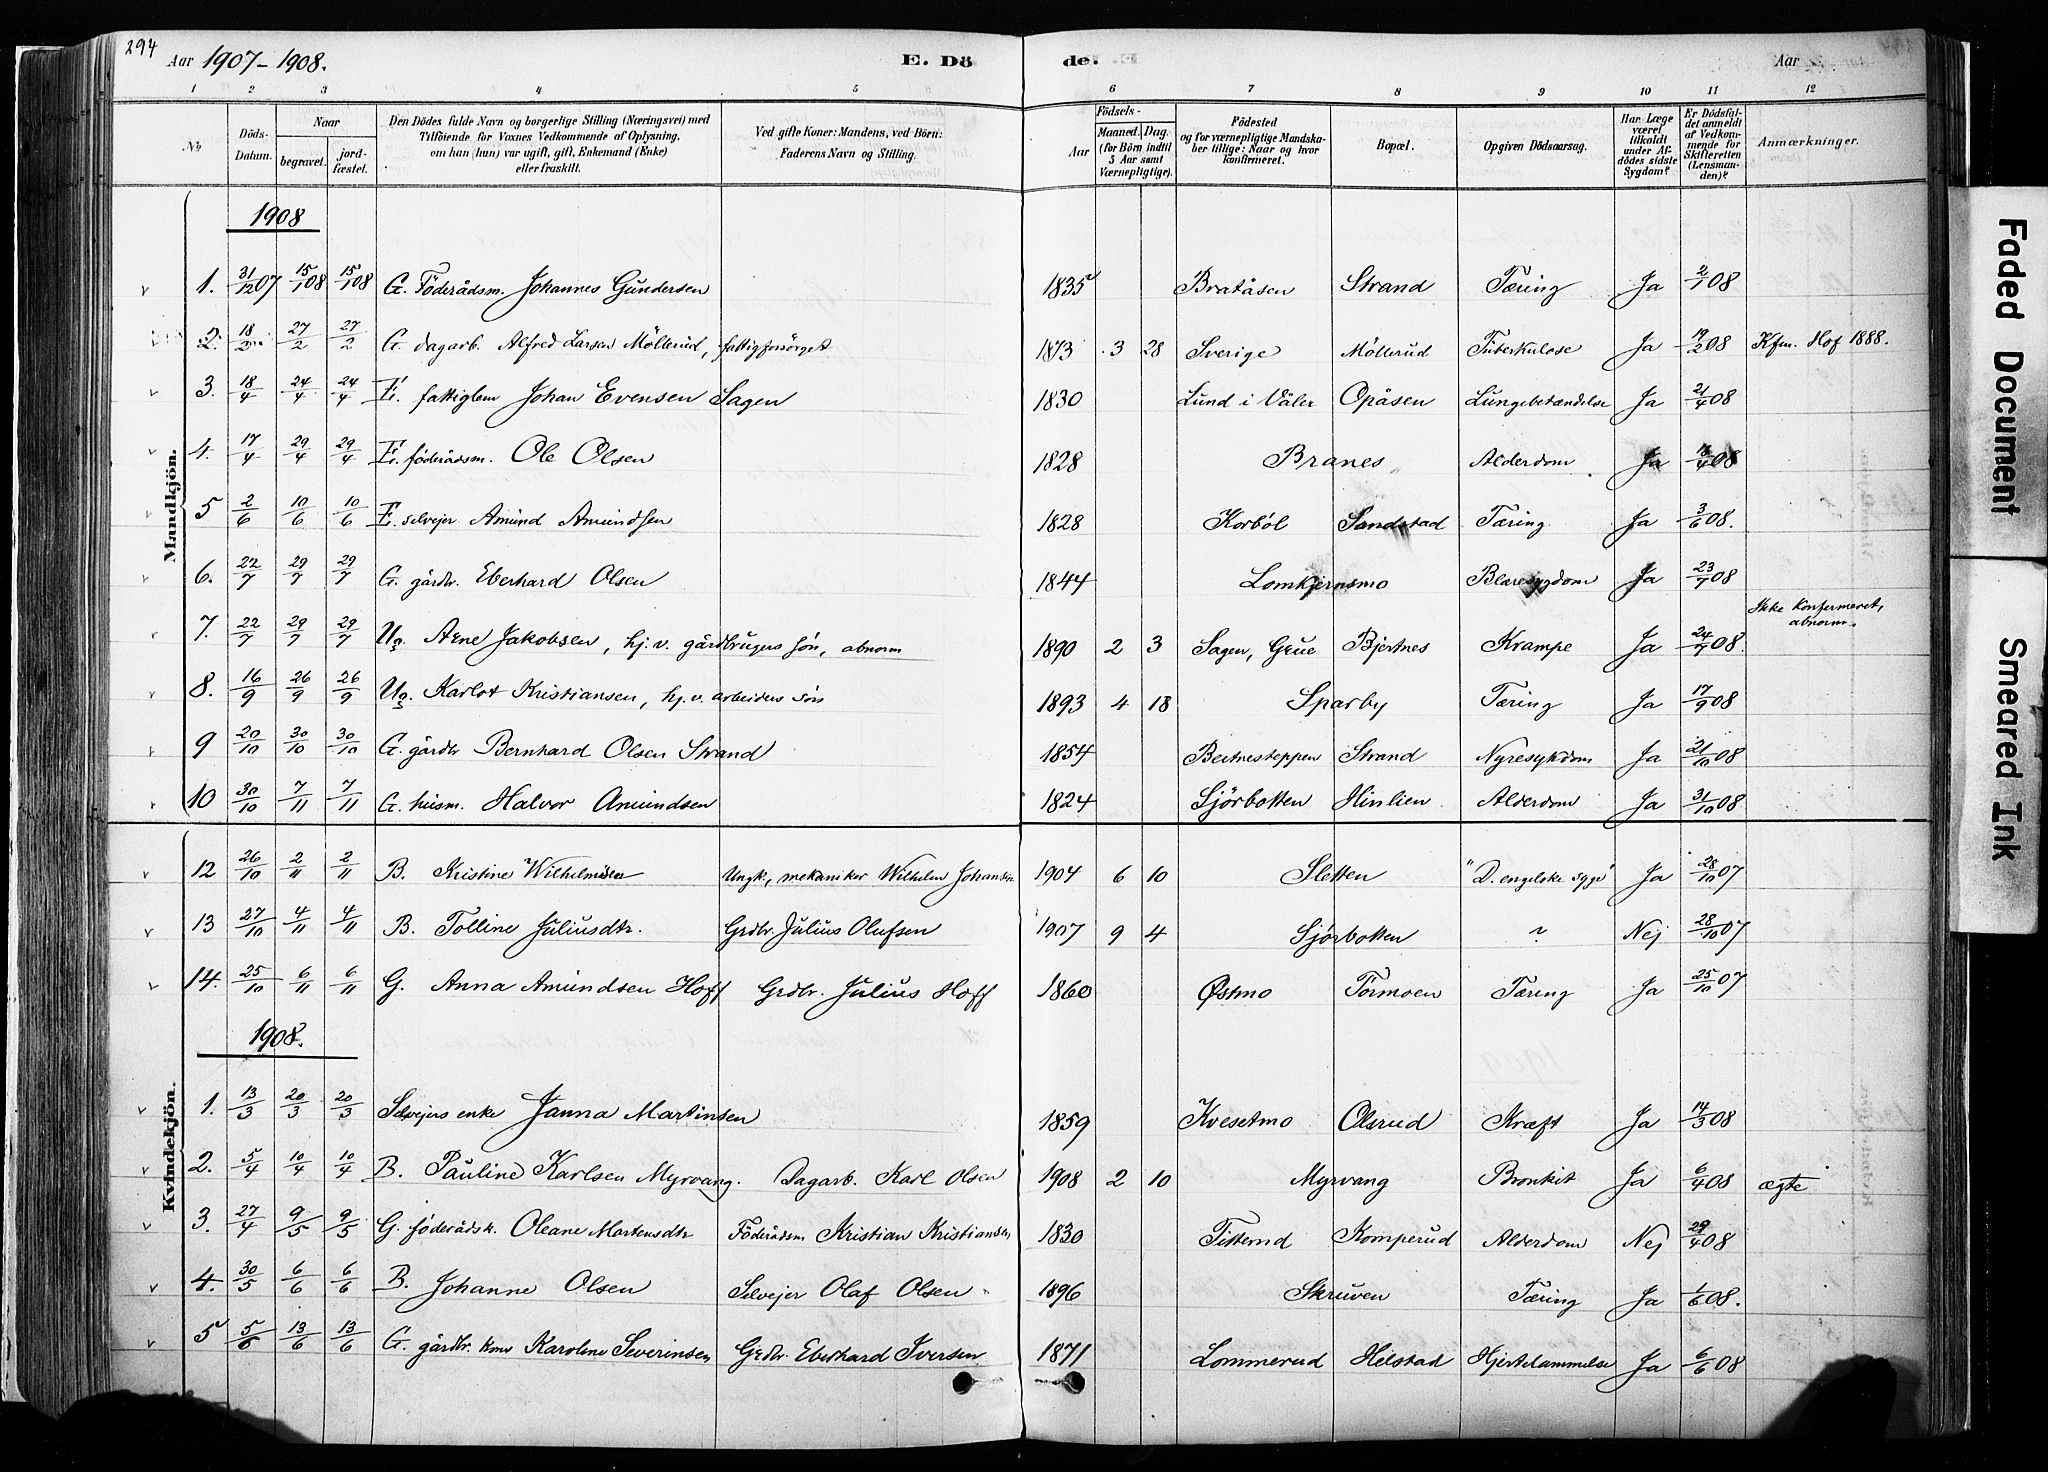 294
Aar 1907-1908. E. Dö de. Aar
1 2 3 4 5 6 7 8 9 10 11 12
No. Döds-Datum. Naar begravet. jordfæstet. Den Dödes fulde Navn og borgerlige Stilling (Næringsvei) med Tilföiende for Voxnes Vedkommende af Oplysning, om han (hun) var ugift, gift, Enkemand (Enke) eller fraskilt. Ved gifte Koner: Mandens, ved Börn: Faderens Navn og Stilling. Aar Födsels- Maaned. Dag. (for Börn indtil 5 Aar samt Værnepligtige). Födested og for værnepligtige Mandskaber tillige: Naar og hvor konfirmeret. Bopæl. Opgiven Dödsaarsag. Har Læge været tilkaldt under Afdödes sidste Sygdom? Er Dödsfaldet anmeldt af Vedkommende for Skifteretten (Lensmanden)? Anmærkninger.
Mandkjön.
1908
1. 31/12 07 15/1 08 15/1 08 G. Föderådsm. Johannes Gundersen 1835 Bratåsen Strand Tæring Ja 2/1 08
2. 18/2 27/2 27/2 G. dagarb. Alfred Larsen Möllerud, fattigforsörget 1873 3 28 Sverige Möllerud Tuberkulose Ja 19/2 08 Kfm. Hof 1888.
3. 18/4 24/4 24/4 E. fattiglem Johan Evensen Sagen 1830 Lund i Våler Opåsen Lungebetændelse Ja 21/4 08
4. 17/4 29/4 29/4 E. föderådsm. Ole Olsen 1828 Branes Alderdom Ja 18/4 08
5 2/6 10/6 10/6 E. selvejer Amund Amundsen 1828 Korböl Sandstad Tæring Ja 3/6 08.
6. 22/7 29/7 29/7 G. gårdbr. Eberhard Olsen 1844 Lomkjernsmo Blæresygdom Ja 23/7 08
7. 22/7 29/7 29/7 Ug. Arne Jakobsen, hj. v. gårdbrugers sön, abnorm 1890 2 3 Sagen, Grue Bjertnes Krampe Ja 24/7 08. Ikke konfirmeret, abnorm.
8. 16/9 26/9 26/9 Ug. Karlot Kristiansen, hj. v. arbeiders sön 1893 4 18 Sparby Tæring Ja 17/9 08
9 20/10 30/10 30/10 G. gårdbr Bernhard Olsen Strand 1854 Bertnesteppen Strand Nyresykdom Ja 21/10 08
10 30/10 7/11 7/11 G. husm. Halvor Amundsen 1824 Sjörbotten Hinlien Alderdom Ja 31/10 08
Kvindekjön.
12 26/10 2/11 2/11 B. Kristine Wilhelmsen Ungk., mekaniker Wilhelm Johansen 1904 6 10 Sletten "D. engelske syge" Ja 28/10 07
13 27/10 4/11 4/11 B. Tolline Juliusdtr. Grdbr. Julius Olufsen 1907 9 4 Sjörbotten ? Nej 28/10 07
14. 25/10 6/11 6/11 G. Anna Amundsen Hoff Grdbr. Julius Hoff 1860 Østmo Tormoen Tæring Ja 25/10 07
1908.
1. 13/3 20/3 20/3 Selvejers enke Janna Martinsen 1859 Kvesetmo Olsrud Kræft Ja 14/3 08
2. 5/4 10/4 10/4 B. Pauline Karlsen Myrvang. Dagarb. Karl Olsen 1908 2 10 Myrvang Bronkit Ja 6/4 08 ægte
3. 27/4 9/5 9/5 G. föderådsk. Oleane Martensdtr Föderådsm Kristian Kristiansen 1830 Komperud Alderdom Nej 29/4 08
4. 30/5 6/6 6/6 B. Johanne Olsen Selvejer Olaf Olsen 1896 Skruven Tæring Ja 1/6 08.
5 5/6 13/6 13/6 G. gårdbr. kone Karoline Severinsen Grdbr. Eberhard Iversen 1871 Lommerud Helstad Hjertelammelse Ja 6/6 08
Faded Document
Smeared Ink